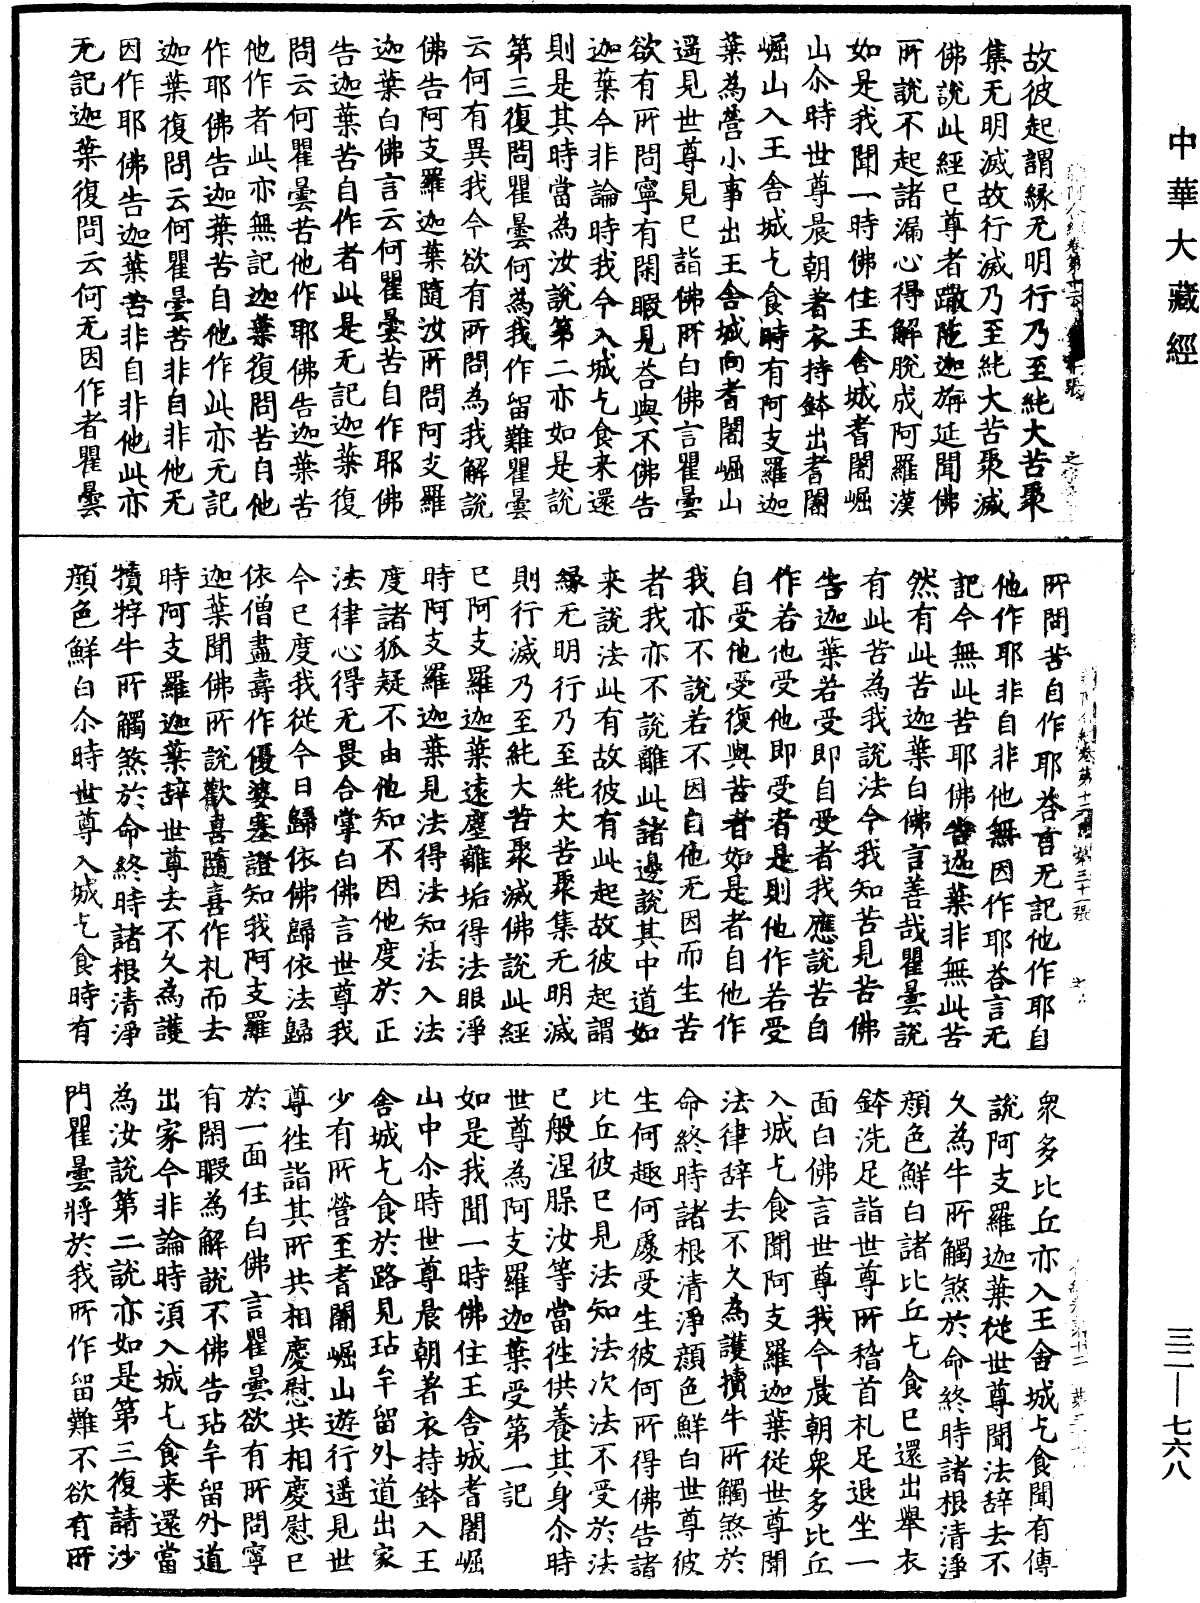 中華大藏經
故彼起謂緣无明行乃至純大苦聚
集无明滅故行滅乃至純大苦聚滅
佛說此經已尊者𨅖陁迦旃延聞佛
所說不起諸漏心得解脫成阿羅漢
如是我聞一時佛住王舍城耆闍崛
山尒時世尊晨朝著衣持鉢出耆闍
崛山入王舍城乞食時有阿支羅迦
葉為營小事出王舍城向耆闍崛山
遥見世尊見已詣佛所白佛言瞿曇
欲有所問寧有閑暇見荅與不佛告
迦葉今非論時我今入城乞食来還
則是其時當為汝說第二亦如是說
第三復問瞿曇何為我作留難瞿曇
云何有異我今欲有所問為我解說
佛告阿支羅迦葉隨汝所問阿支羅
迦葉白佛言云何瞿曇苦自作耶佛
告迦葉苦自作者此是无記迦葉復
問云何瞿曇苦他作耶佛告迦葉苦
他作者此亦無記迦葉復問苦自他
作耶佛告迦葉苦自他作此亦无記
迦葉復問云何瞿曇苦非自非他无
因作耶佛告迦葉苦非自非他此亦
无記迦葉復問云何无因作者瞿曇
所問苦自作耶荅言无記他作耶自
他作耶非自非他無因作耶荅言无
記今無此苦耶佛告迦葉非無此苦
然有此苦迦葉白佛言善哉瞿曇說
有此苦為我說法令我知苦見苦佛
告迦葉若受即自受者我應說苦自
作若他受他即受者是則他作若受
自受他受復與苦者如是者自他作
我亦不說若不因自他无因而生苦
者我亦不說離此諸邊說其中道如
来說法此有故彼有此起故彼起謂
緣无明行乃至純大苦聚集无明滅
則行滅乃至純大苦聚滅佛說此經
已阿支羅迦葉遠塵離垢得法眼淨
時阿支羅迦葉見法得法知法入法
度諸狐疑不由他知不因他度於正
法律心得无畏合掌白佛言世尊我
今已度我從今日歸依佛歸依法歸
依僧盡壽作優婆塞證知我阿支羅
迦葉聞佛所說歡喜隨喜作礼而去
時阿支羅迦葉辞世尊去不久為護
犢牸牛所觸煞於命終時諸根清淨
顏色鮮白尒時世尊入城乞食時有
眾多比丘亦入王舍城乞食聞有傳
說阿支羅迦葉從世尊聞法辞去不
久為牛所觸煞於命終時諸根清淨
顏色鮮白諸比丘乞食已還出舉衣
鉢洗足詣世尊所稽首礼足退坐一
面白佛言世尊我今晨朝眾多比丘
入城乞食聞阿支羅迦葉從世尊聞
法律辞去不久為護犢牛所觸煞於
命終時諸根清淨顏色鮮白世尊彼
生何趣何處受生彼何所得佛告諸
比丘彼已見法知法次法不受於法
已般涅槃汝等當往供養其身尒時
世尊為阿支羅迦葉受第一記
如是我聞一時佛住王舍城耆闍崛
山中尒時世尊晨朝著衣持鉢入王
舍城乞食於路見玷牟留外道出家
少有所營至耆闍崛山遊行遥見世
尊往詣其所共相慶慰共相慶慰已
於一面住白佛言瞿曇欲有所問寧
有閑暇為解說不佛告玷牟留外道
出家今非論時須入城乞食来還當
為汝說第二說亦如是第三復請沙
門瞿曇將於我所作留難不欲有所
三二—七六八